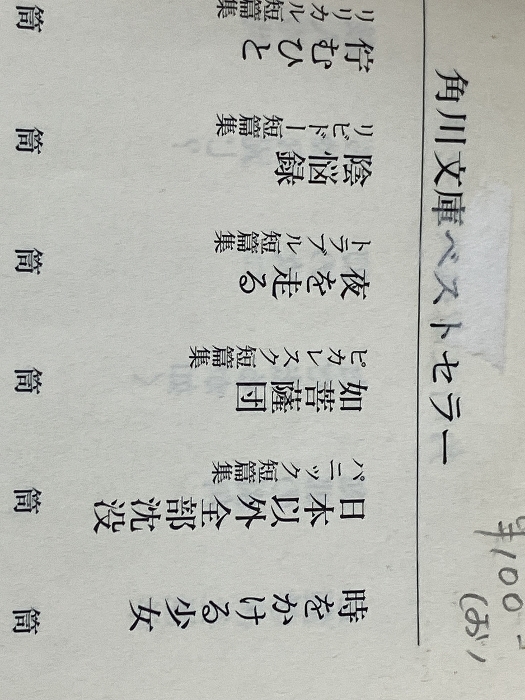 角川文庫ベストセラー
時をかける少女
筒
日本以外全部沈没
パニック短篇集
筒
如菩薩団
ピカレスク短篇集
筒
夜を走る
トラブル短篇集
筒
陰悩録
リビドー短篇集
筒
佇むひと
リリカル短篇集
筒
¥100-